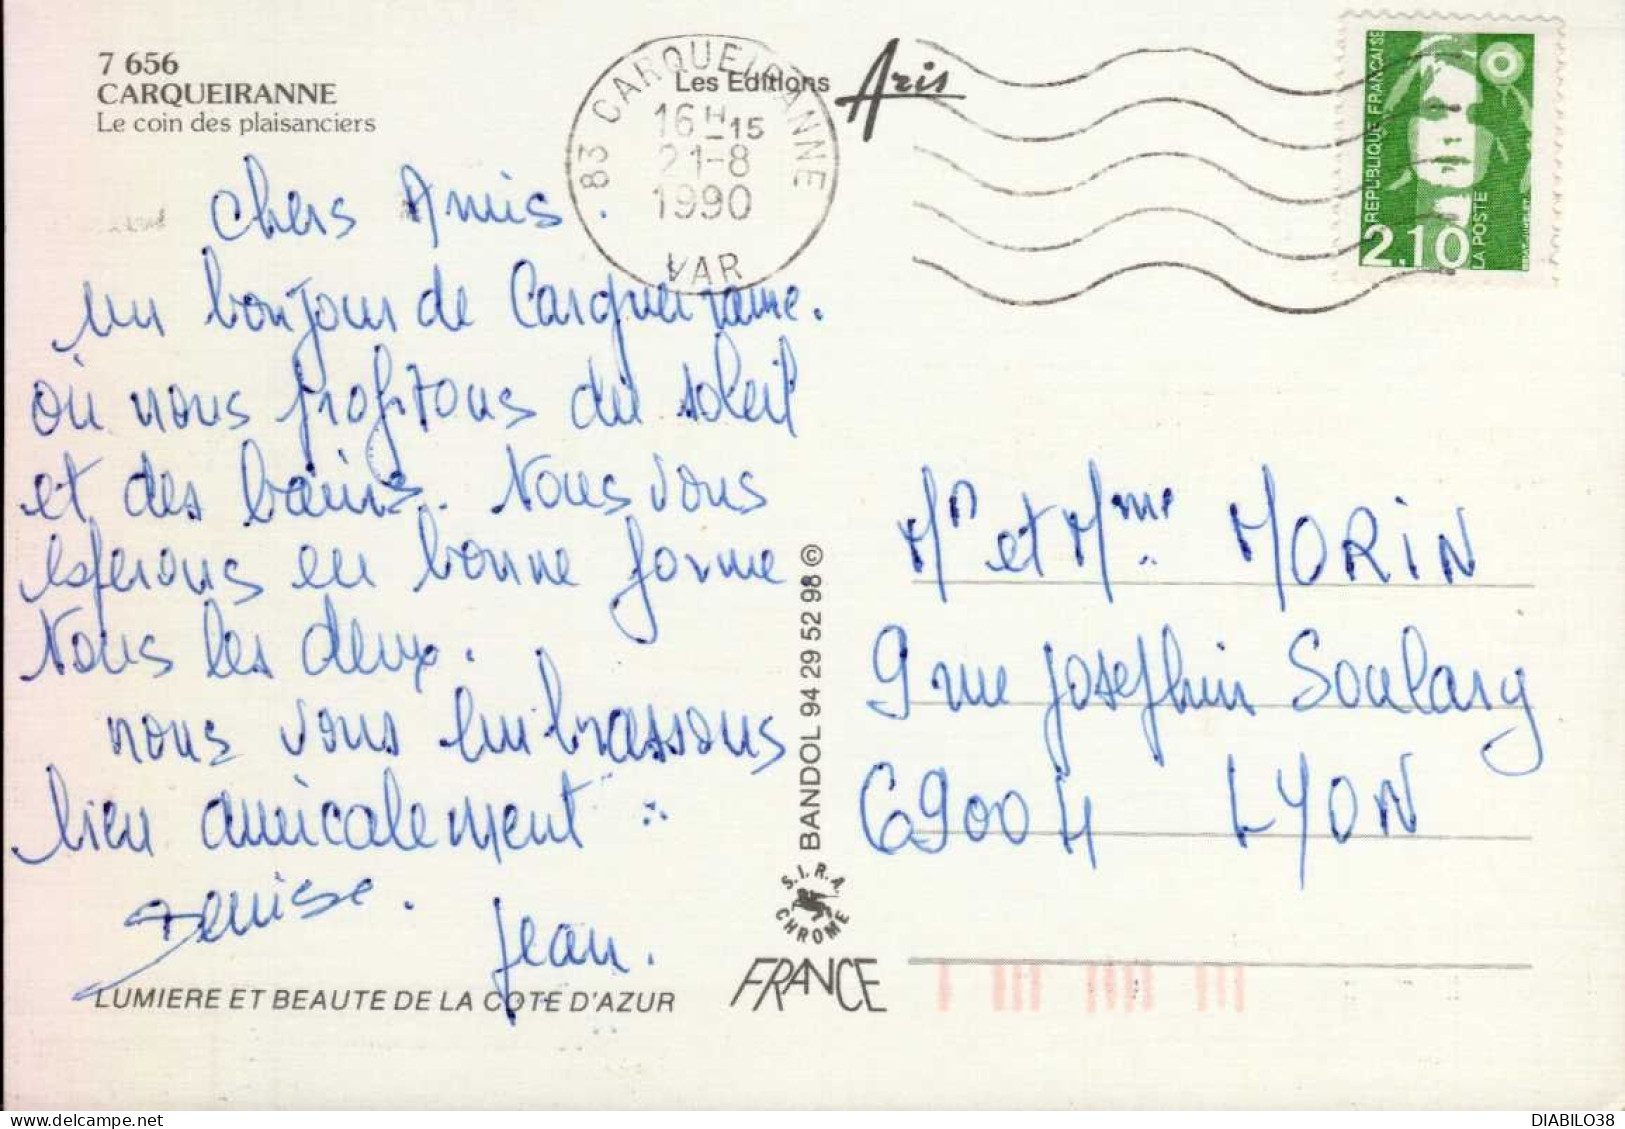 7 656
CARQUEIRANNE
Le coin des plaisanciers
Les Editions Aris
83 CARQUEIRANNE
16H-15
21-8
1990
VAR
REPUBLIQUE FRANCAISE
LA POSTE
2.10
Chers Amis.
un bonjour de Carqueiranne.
où nous profitons du soleil
et des bains. Nous vous
esperons en bonne forme
Nous les deux.
nous vous embrassons
bien amicalement
Denise. Jean.
Mr et Mme MORIN
9 rue Josephin Soulary
69004 LYON
BANDOL 94 29 52 98 ©
S.I.R.A.
CHROME
FRANCE
LUMIERE ET BEAUTE DE LA COTE D'AZUR
DIABILO38